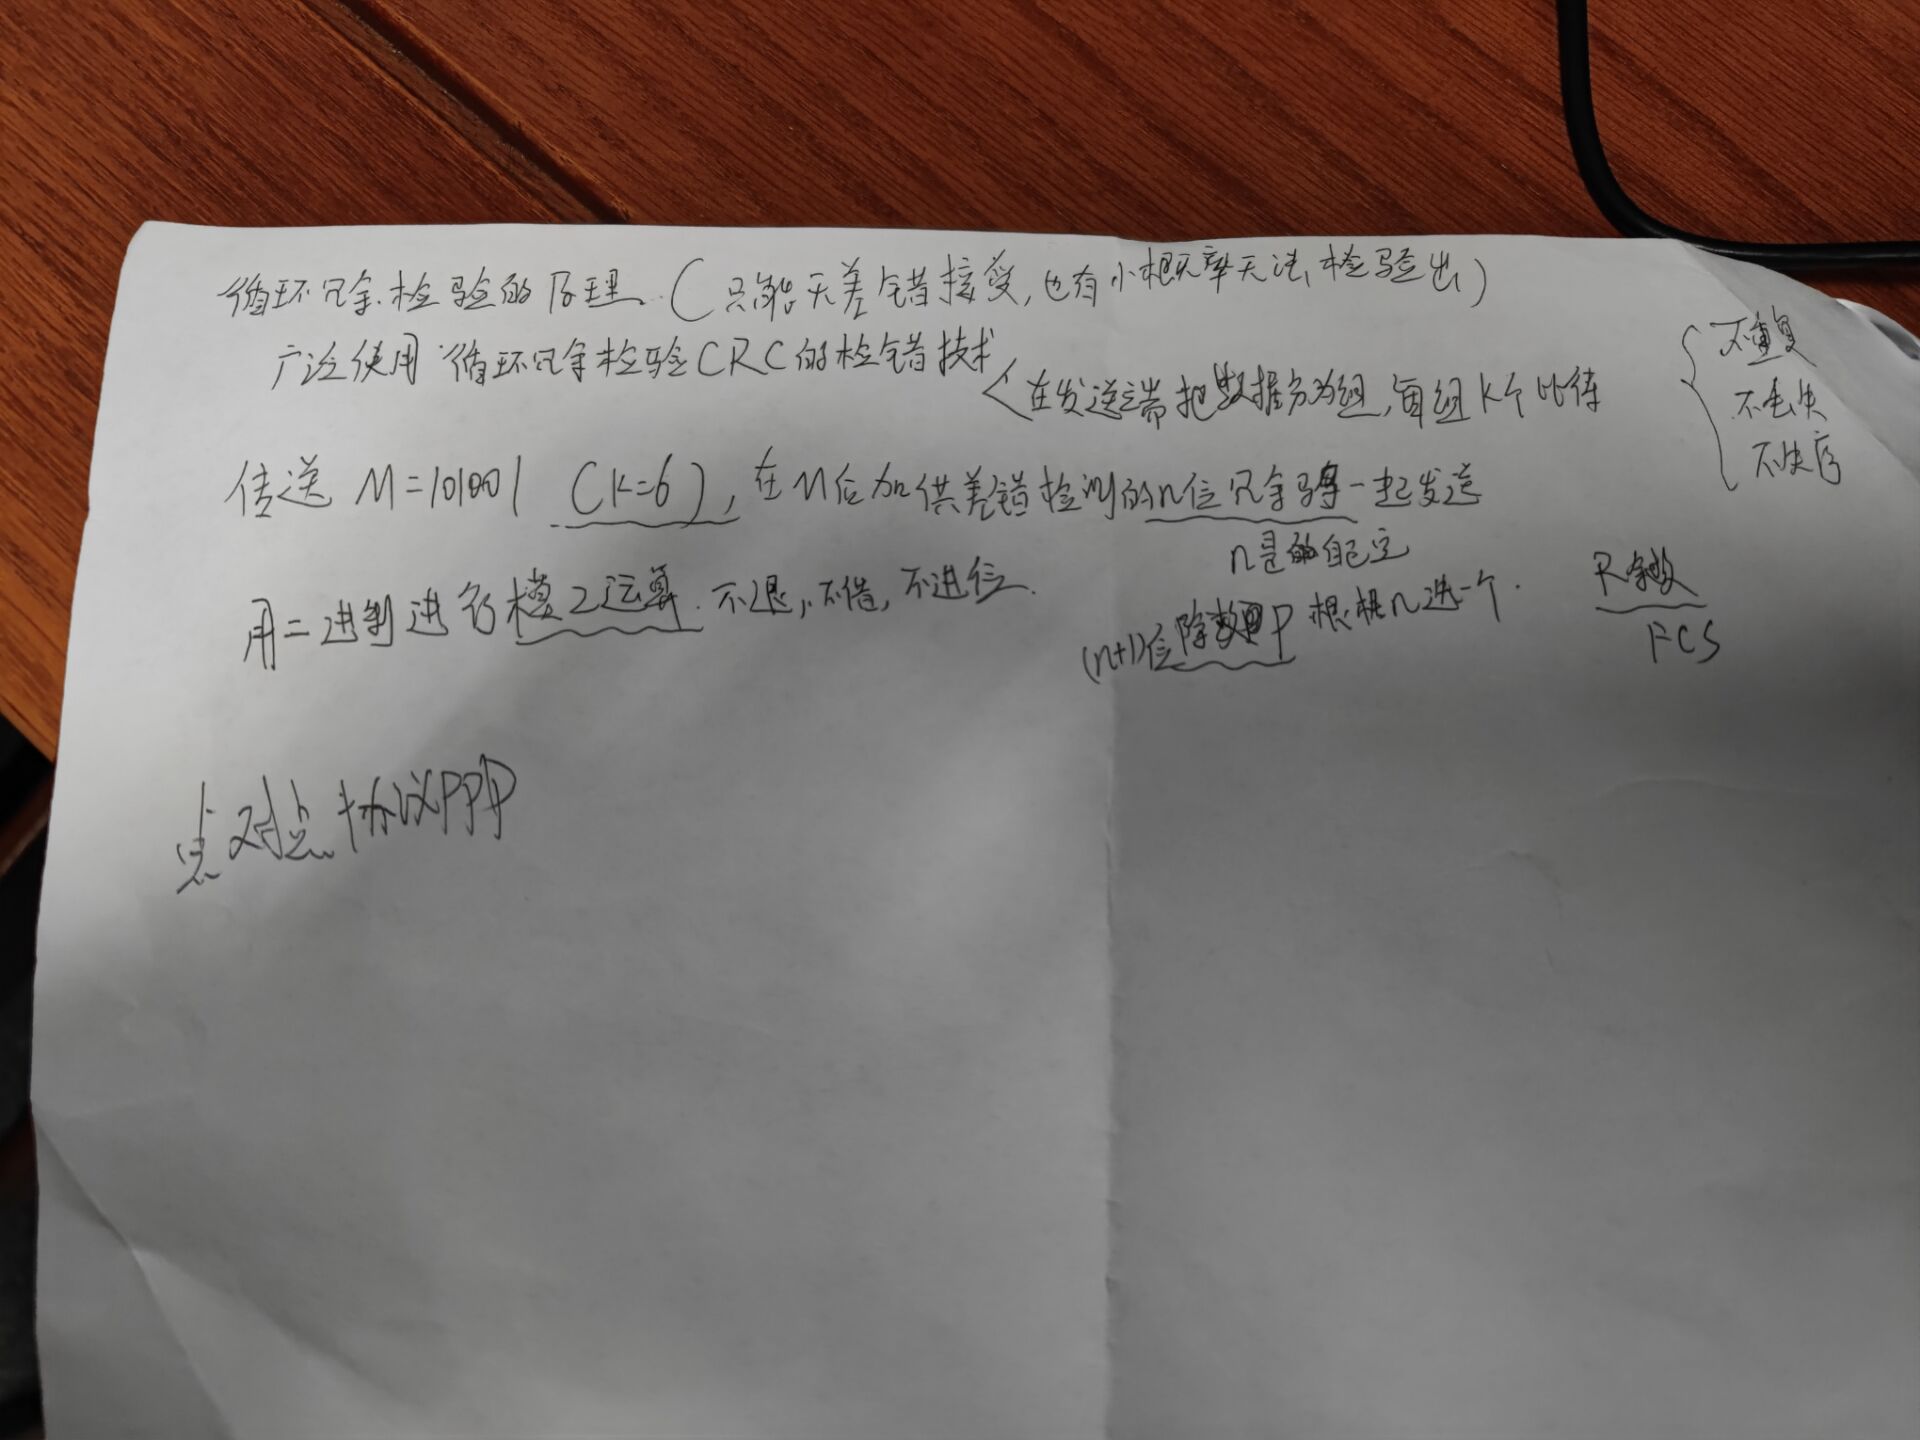 循环冗余检验的原理.(只能无差错接受,也有小概率无法检验出)
广泛使用循环冗余检验CRC的检错技术
在发送端把数据分为组,每组K个比特
不重复
不丢失
不失序
传送 M=101001 (k=6),在M后加供差错检测的n位冗余码一起发送
n是自己定
用二进制进行模2运算.不退,不借,不进位.
(n+1)位除数P 根据n选一个.
R余数
FCS
点对点协议PPP